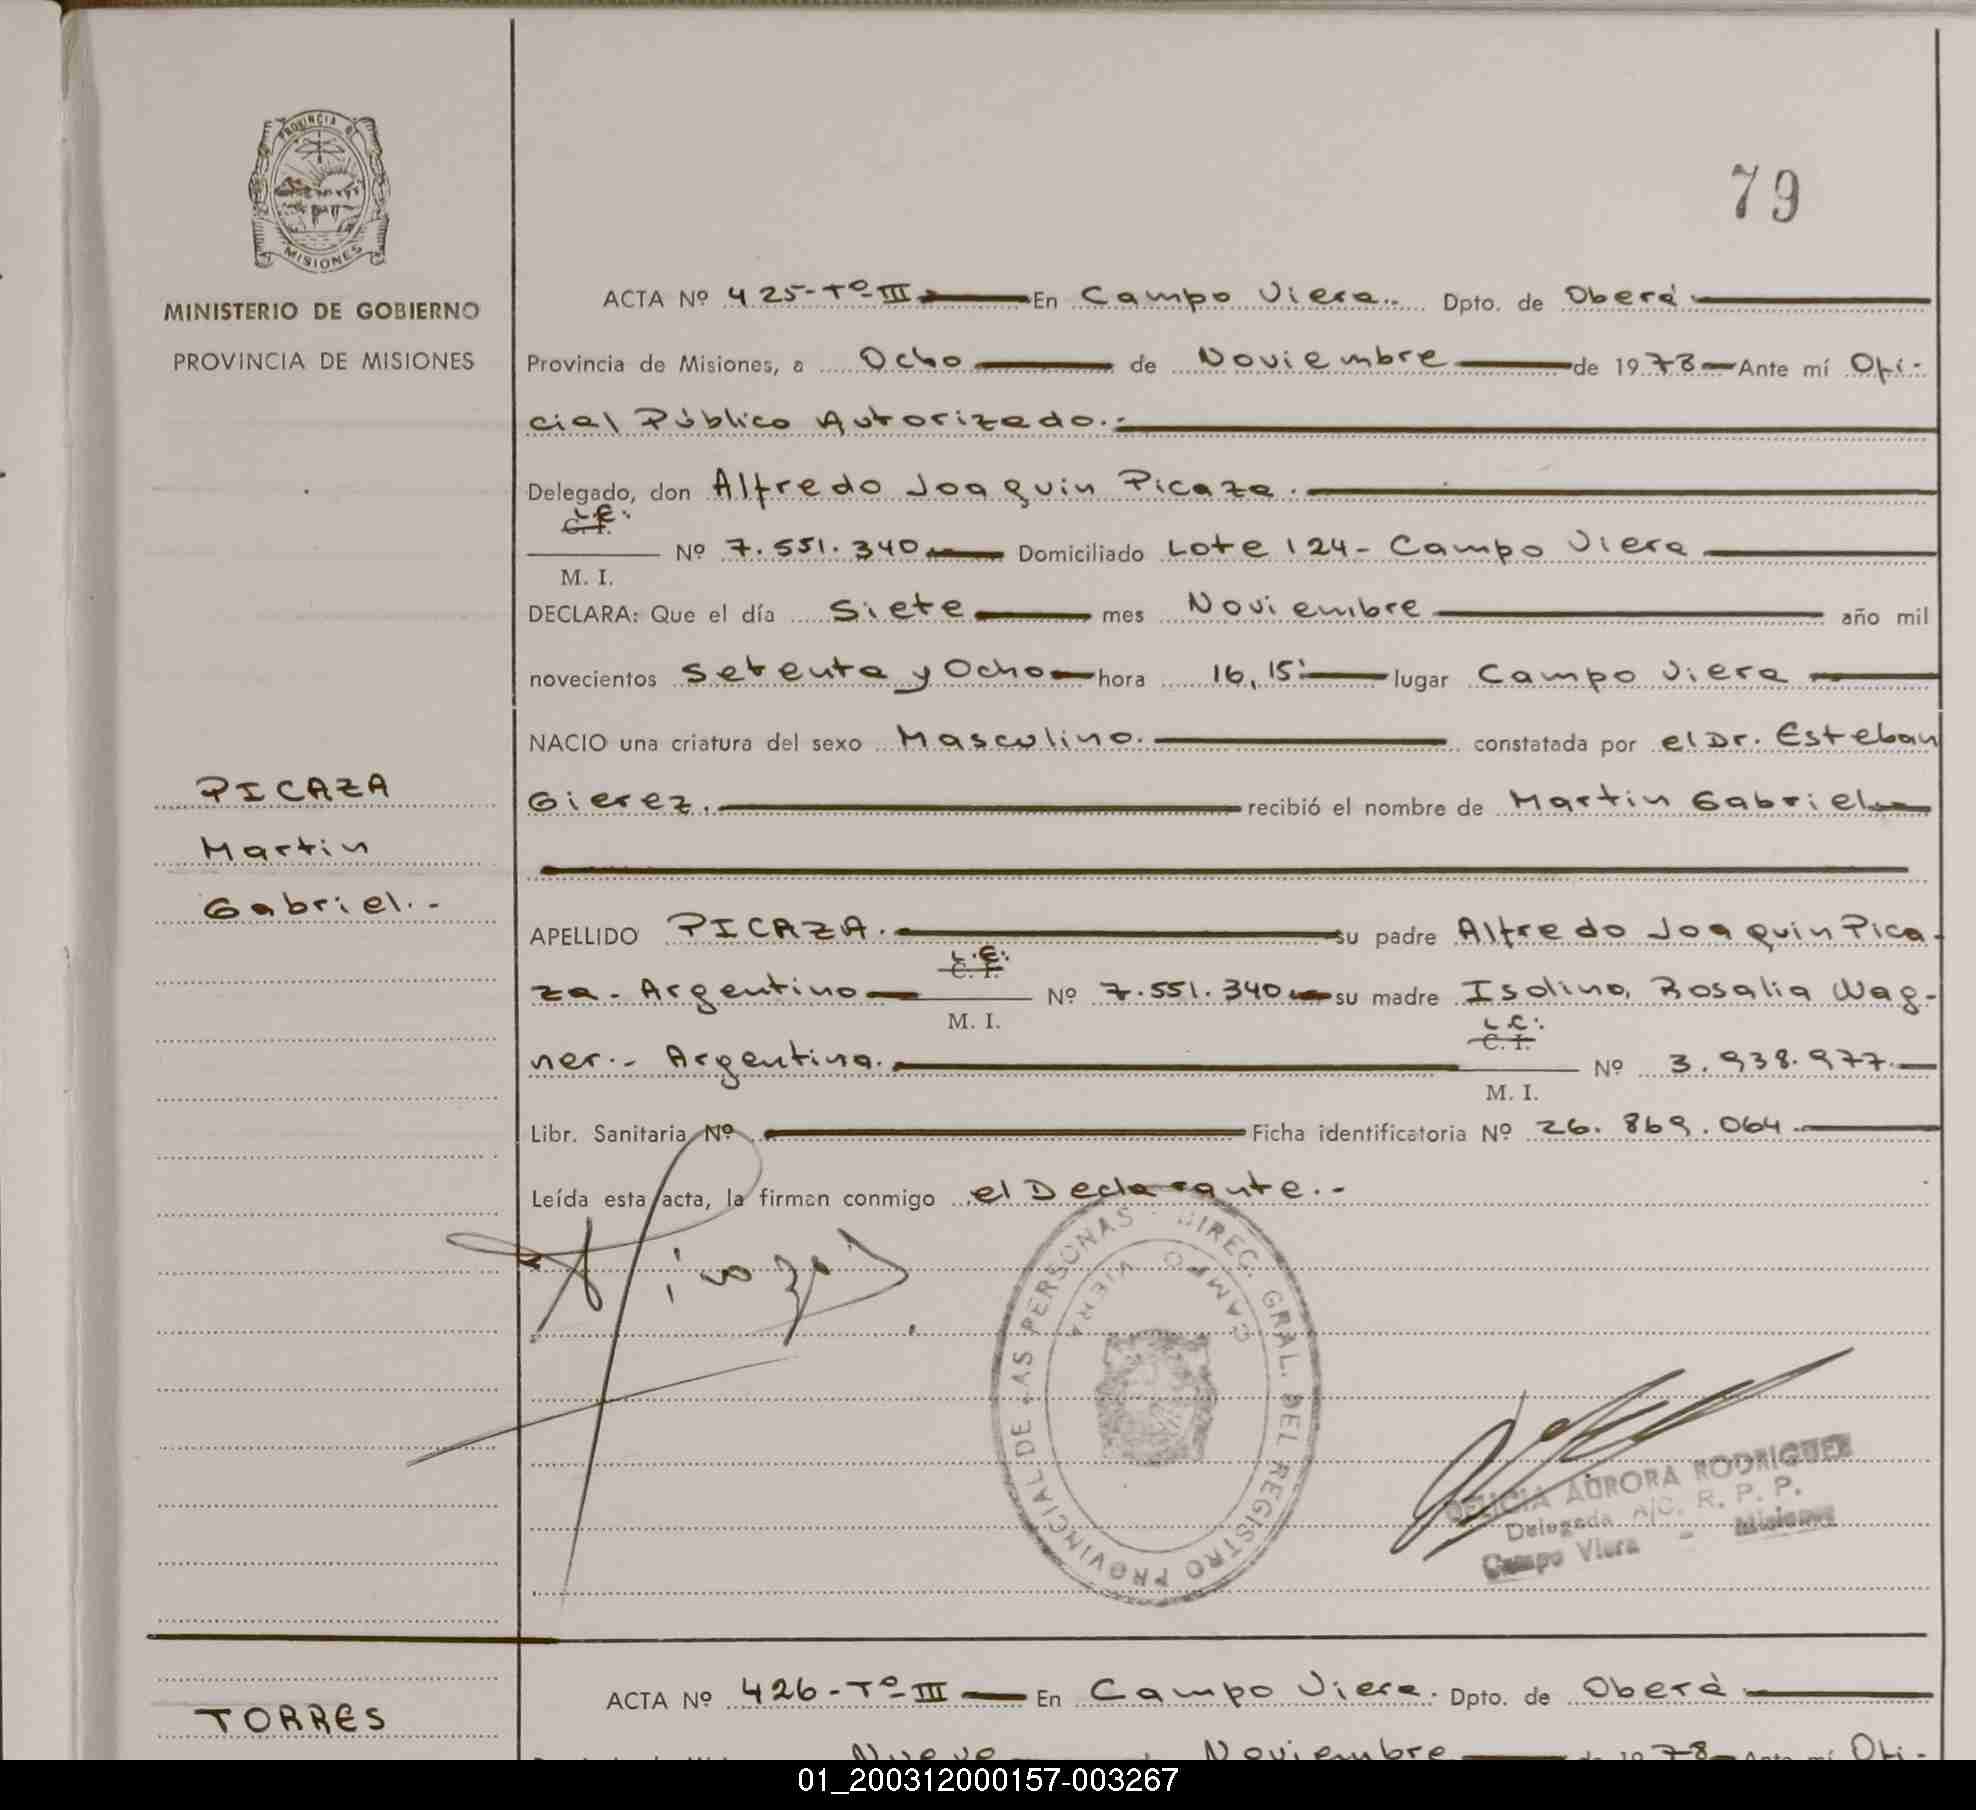 PROVINCIA DE
MISIONES
MINISTERIO DE GOBIERNO
PROVINCIA DE MISIONES
79
ACTA Nº 425-Tº-III En Campo Viera.. Dpto. de Oberá
Provincia de Misiones, a Ocho de Noviembre de 1978 Ante mí Ofi-
cial Público Autorizado.-
Delegado, don Alfredo Joaquin Picaza.
L.E. C. I. M. I. Nº 7.551.340 Domiciliado Lote 124- Campo Viera
DECLARA: Que el día Siete mes Noviembre año mil
novecientos Setenta y Ocho hora 16,15 lugar Campo Viera
NACIO una criatura del sexo Masculino. constatada por el Dr. Esteban
Gierez. recibió el nombre de Martin Gabriel
PICAZA
Martin
Gabriel.-
APELLIDO PICAZA. su padre Alfredo Joaquin Pica-
za- Argentino L.E. C. I. M. I. Nº 7.551.340 su madre Isolina Rosalia Wag-
ner.- Argentina. L.C. C. I. M. I. Nº 3.938.977.
Libr. Sanitaria Nº Ficha identificatoria Nº 26.869.064.
Leída esta acta, la firman conmigo el Declarante.-
DIREC. GRAL. DEL REGISTRO PROVINCIAL DE LAS PERSONAS
CAMPO VIERA
DELICIA AURORA RODRIGUEZ
Delegada A/C. R. P. P.
Campo Viera - Misiones
ACTA Nº 426-Tº-III En Campo Viera. Dpto. de Oberá
TORRES
Nueve Noviembre de 1978 Ante mí Ofi-
01_200312000157-003267